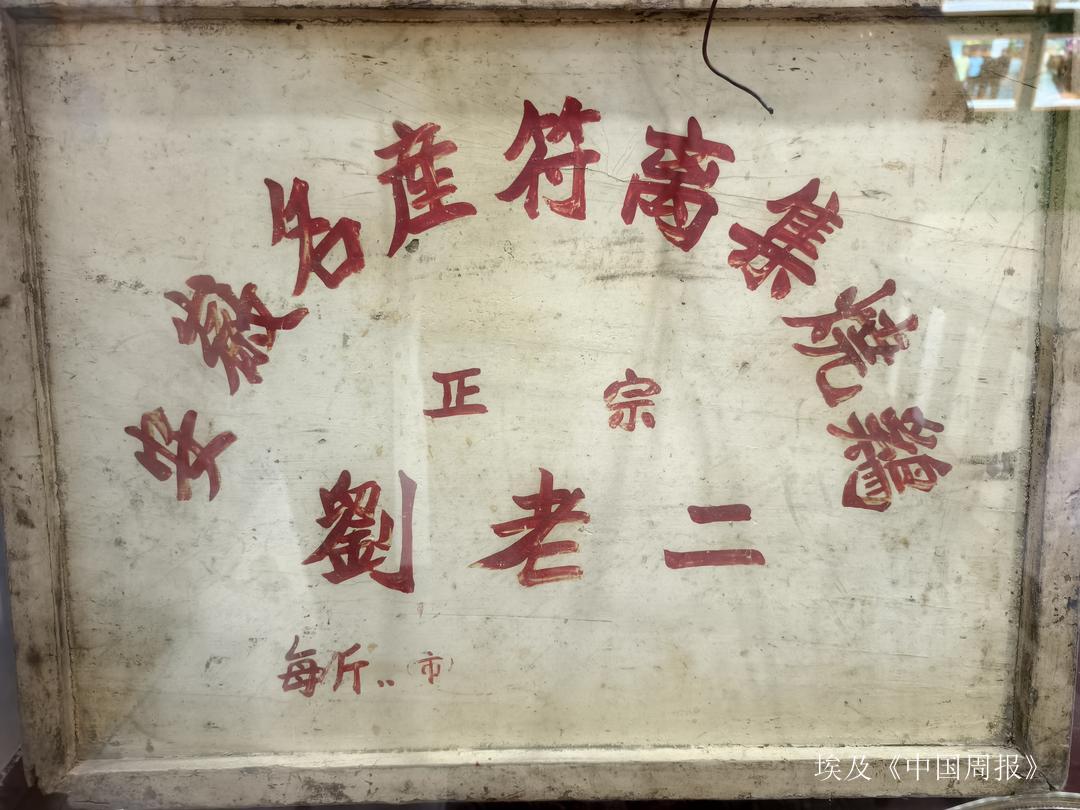 安徽名產符离集燒鷄
正宗
劉老二
每斤..(市)
埃及《中国周报》